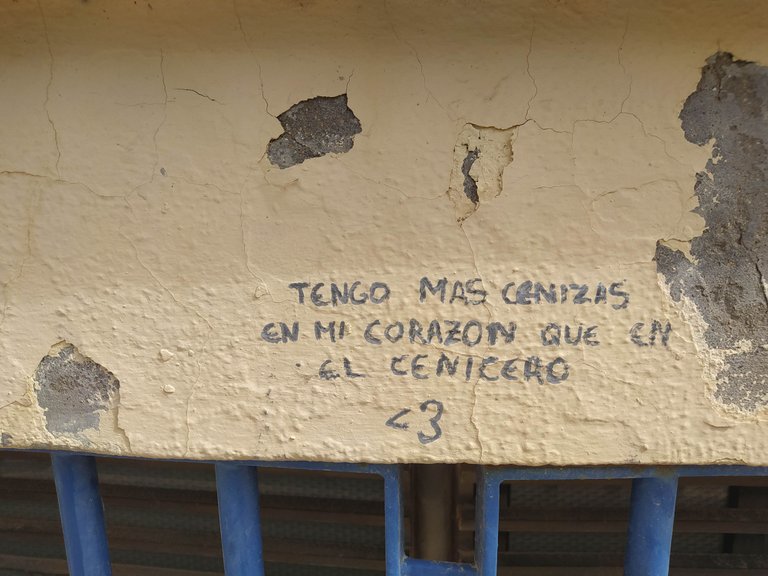 TENGO MAS CENIZAS
EN MI CORAZON QUE EN
EL CENICERO
<3